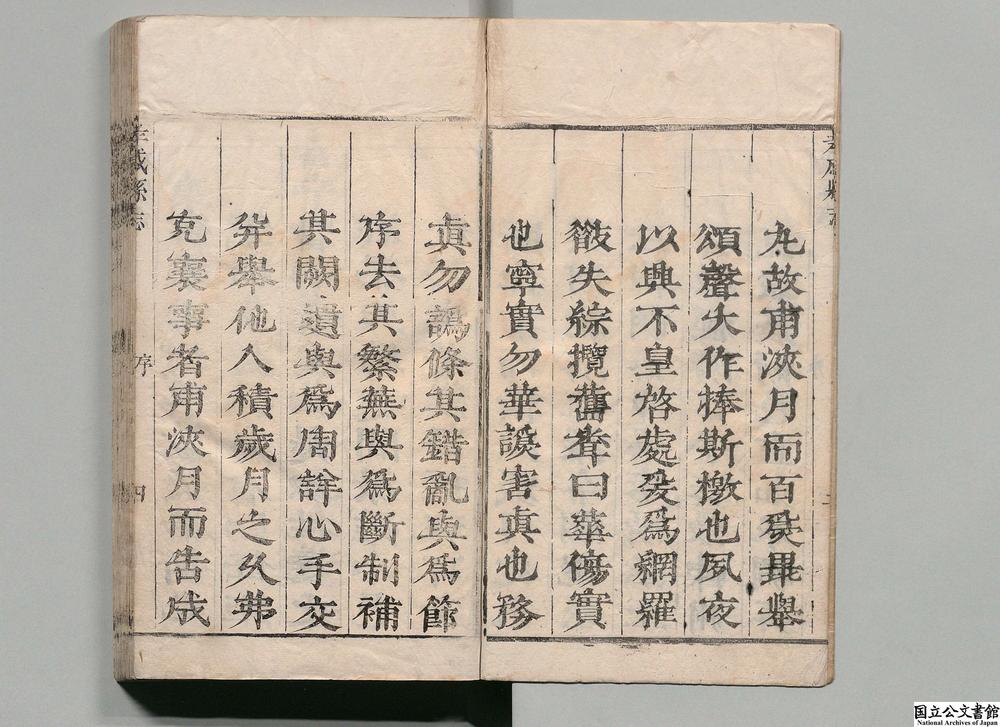 九故甫浹月而百癹畢舉
頌聲大作捧斯檄也夙夜
以興不皇啓處爰爲網羅
散失綜攬舊聋曰華傷實
也寧實勿華諼害真也務
真勿譌條其錯亂與爲節
序去其繁蕪與爲斷制補
其闕遺與爲周詳心手交
幷舉他人積歲月之久弗
克襄事者甫浹月而告成
序
四
国立公文書館
National Archives of Japan